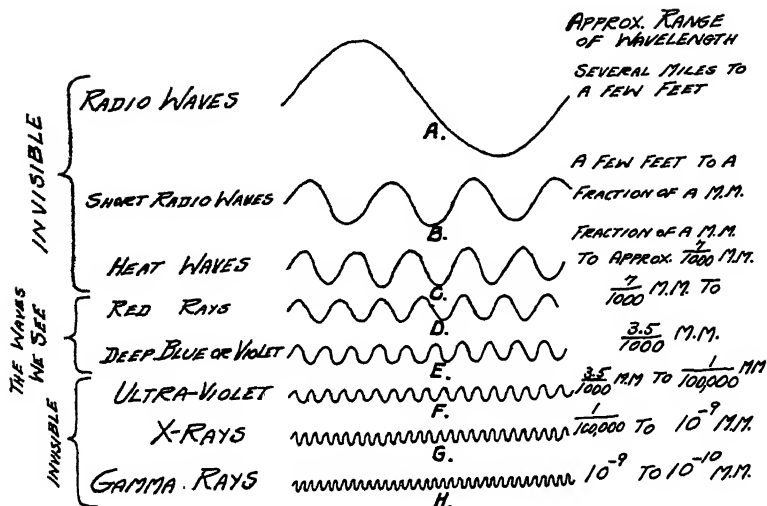 APPROX. RANGE
OF WAVELENGTH
INVISIBLE
RADIO WAVES
A.
SEVERAL MILES TO
A FEW FEET
SHORT RADIO WAVES
B.
A FEW FEET TO A
FRACTION OF A M.M.
HEAT WAVES
C.
FRACTION OF A M.M.
TO APPROX. 7/1000 M.M.
THE WAVES
WE SEE
RED RAYS
D.
7/1000 M.M. TO
DEEP BLUE OR VIOLET
E.
3.5/1000 M.M.
INVISIBLE
ULTRA-VIOLET
F.
3.5/1000 M.M TO 1/100,000 MM
X-RAYS
G.
1/100,000 TO 10⁻⁹ M.M.
GAMMA. RAYS
H.
10⁻⁹ TO 10⁻¹⁰ M.M.